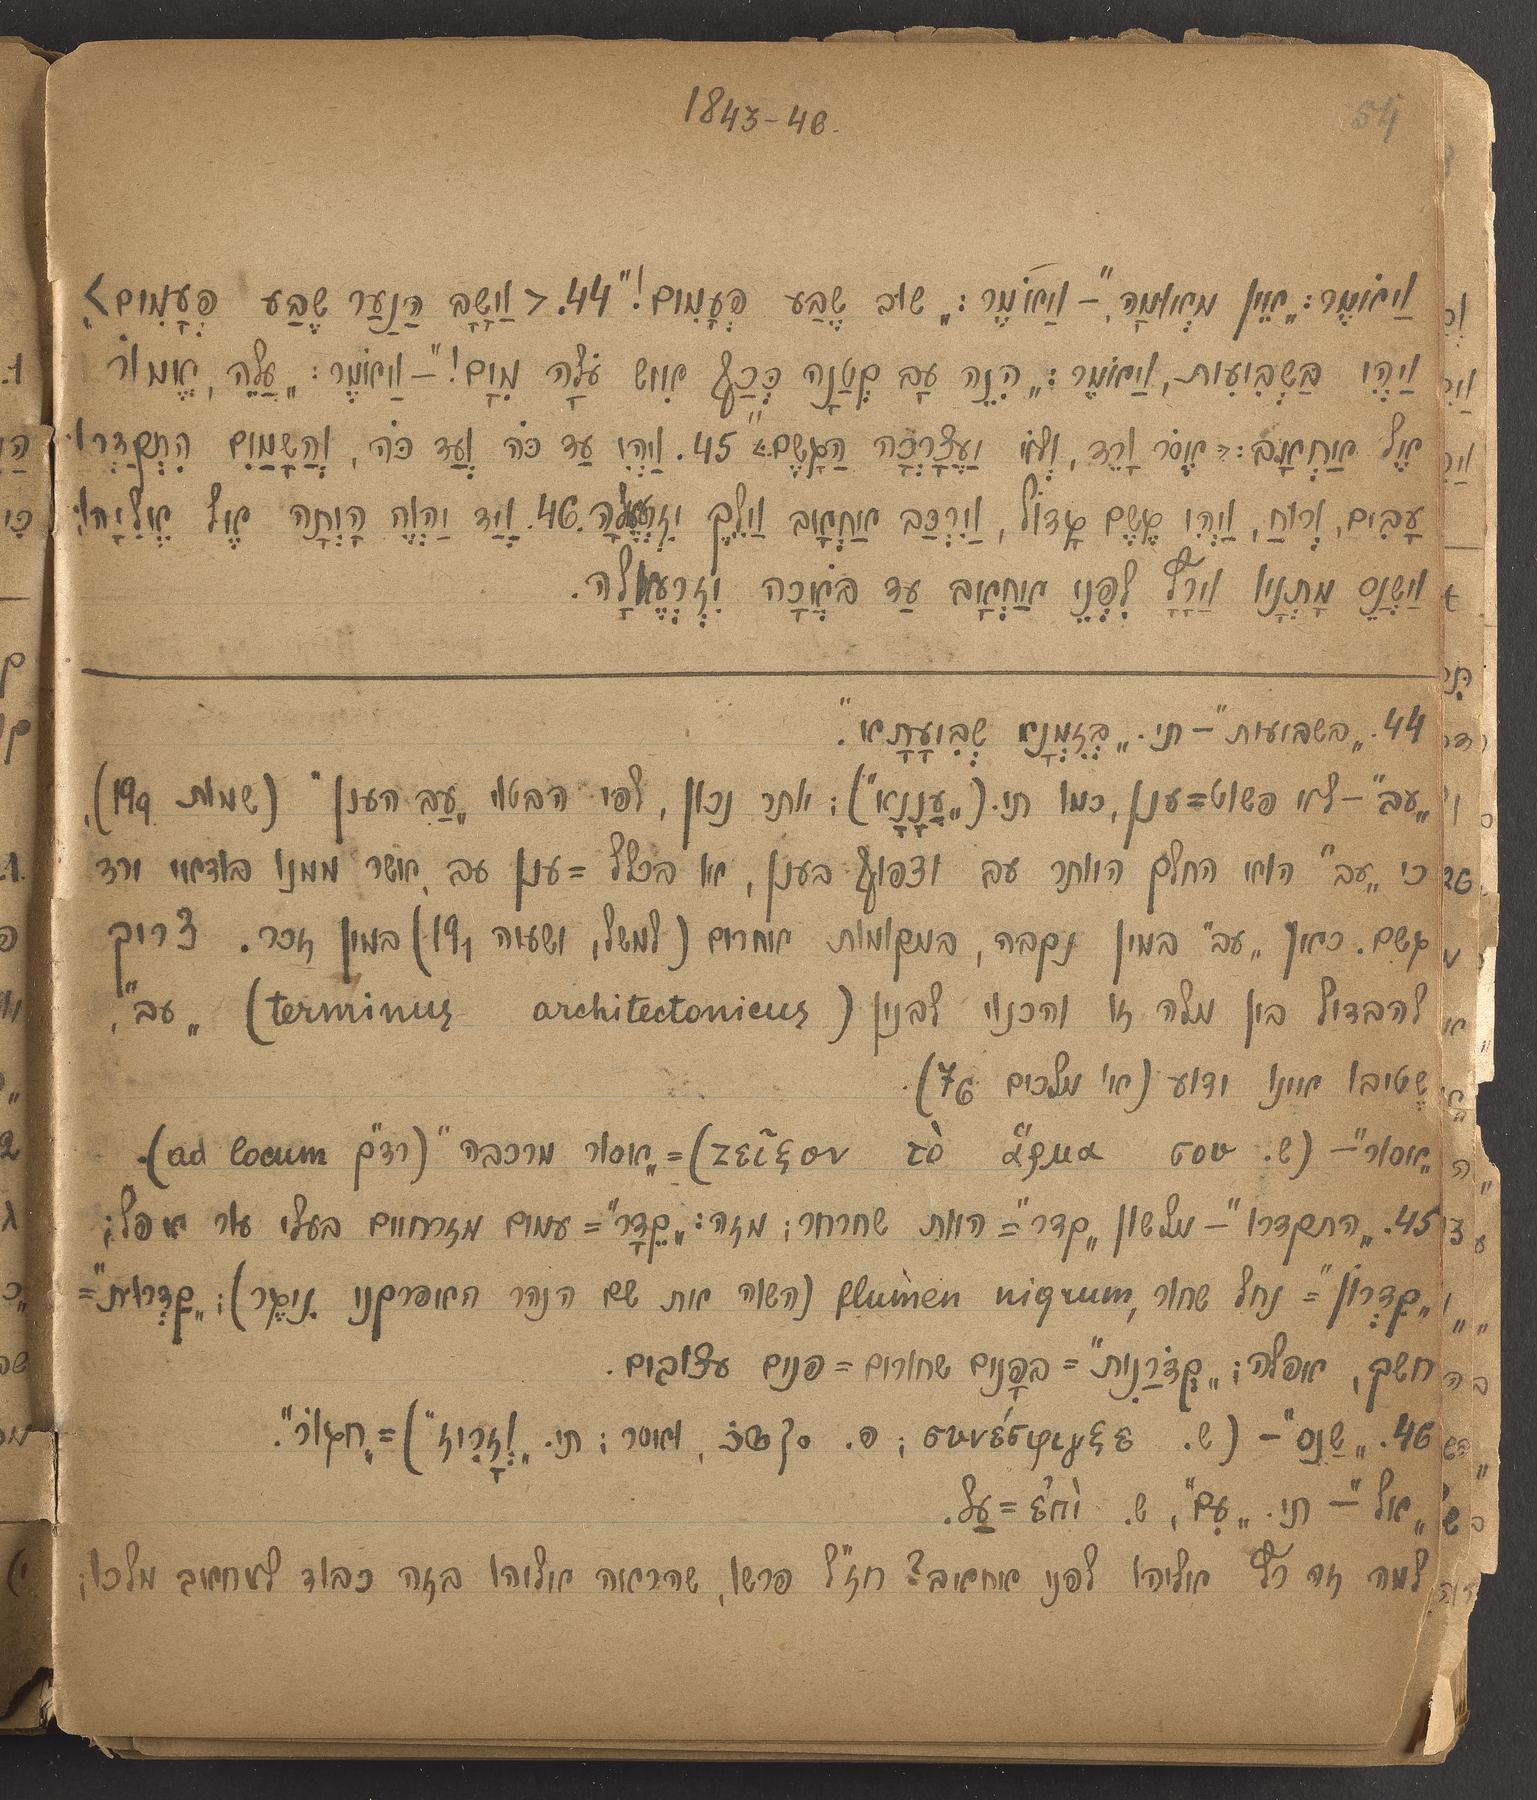 18 43-46.
54
וַיֹּאמֶר: „אֵין מְאוּמָה,"– וַיֹּאמֶר: „שוּב שֶׁבַע פְּעָמִים!" 44. <וַיָּשָׁב הַנַּעַר שֶׁבַע פְּעָמִים>
וַיְהִי בַּשְּׁבִיעִית, וַיֹּאמֶר: „הִנֵּה עָב קְטַנָּה כְּכַף אִיש עֹלָה מִיָּם!"– וַיֹּאמֶר: „עֲלֵה, אֱמוֹר
אֶל אַחְאָב: <אֱסֹר וָרֵד, וְלֹא יַעֲצָרְכָה הַגָּשֶׁם>" 45. וַיְהִי עַד כֹּה וְעַד כֹּה, וְהַשָּׁמַיִם הִתְקַדְּרוּ
עָבִים, וְרוּחַ, וַיְהִי גֶּשֶׁם גָּדוֹל, וַיִּרְכַּב אַחְאָב וַיֵּלֶךְ יִזְרְעֶאלָה. 46. וְיַד יַהְוֶה הָיְתָה אֶל אֵלִיָּהוּ,
וַיְשַׁנֵּס מָתְנָיו וַיָּרָץ לִפְנֵי אַחְאָב עַד בֹּאֲכָה יִזְרְעֶאלָה.
44. „בשביעית"– תי. „בְּזִמְנָא שְׁבִיעָתָא".
„עב"– לא פשוט=ענן, כמו תי. („עֲנָנָא"); יותר נכון, לפי הבטוי „עַב הענן" (שמות 19₉),
כי „עב" הוא החלק היותר עב וצפוף בענן, או בכלל = ענן עב, אשר ממנו בודאי ירד
גשם. כאן „עב" במין נקבה, במקומות אחרים (למשל, ישעיה 19₁) במין זכר. צריך
להבדיל בין מלה זו והכנוי לבנין (terminus architectonicus) „עב",
שֶׁטיבו אינו ידוע (א' מלכים 7₆).
„אסור"– (ש. ζεῦξον τὸ ἅρμα σου) = „אסור מרכבה" (רד"ק ad locum).
45. „התקדרו"– מלשון „קדר"= היות שחרחר; מזה: „קֵדָר"= עמים מזרחיים בעלי עור אפל;
„קִדְרוֹן"= נחל שחור, flumen nigrum (השוה את שם הנהר האפריקני נִיגֶר); „קַדְרוּת"=
חשך, אפלה; „קְדֹרַנִּית"= בפָנים שחורים = פנים עצובים.
46. „שַׁנֵּס"– (ש. συνέσφιγξε; פ. , ואסר; תי. „וְזָרִיז") = „חגוֹר".
„אל"– תי. „עִם", ש. ἐπὶ = עַל.
למה זה רץ אליהו לפני אחאב? חז"ל פרשו, שהראה אליהו בזה כבוד לאחאב מלכו;